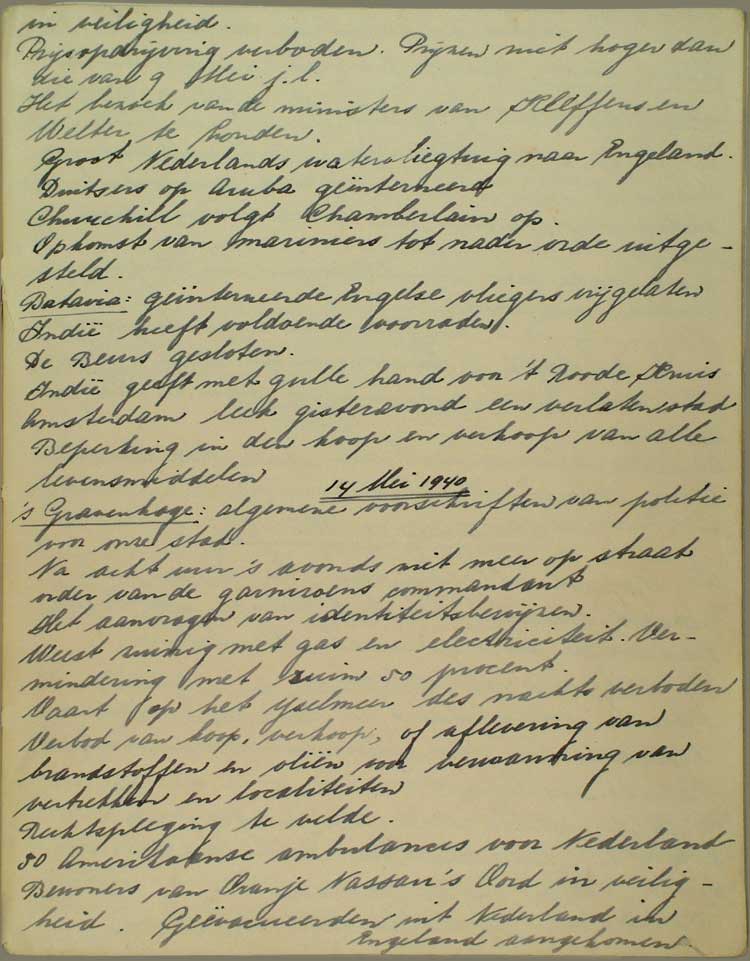 in veiligheid.
Prijsopdrijving verboden. Prijzen niet hoger dan
die van 9 Mei j.l.
Het bezoek van de ministers van Kleffens en
Welter te Londen.
Groot Nederlands watervliegtuig naar Engeland.
Duitsers op Aruba geïnterneerd
Churchill volgt Chamberlain op.
Opkomst van mariniers tot nader orde uitge-
steld.
Batavia: geïnterneerde Engelse vliegers vrijgelaten
Indië heeft voldoende voorraden.
De Beurs gesloten.
Indië geeft met gulle hand voor 't Roode Kruis
Amsterdam leek gisteravond een verlaten stad
Beperking in den koop en verkoop van alle
levensmiddelen
14 Mei 1940
's Gravenhage: algemene voorschriften van politie
voor onze stad.
Na acht uur 's avonds niet meer op straat
order van de garnizoens commandant
Het aanvragen van identiteitsbewijzen.
Weest zuinig met gas en electriciteit. Ver-
mindering met ruim 50 procent.
Vaart op het Yselmeer des nachts verboden
Verbod van koop, verkoop, of aflevering van
brandstoffen en oliën voor verwarming van
vertrekken en localiteiten
Rechtspleging te velde.
50 Amerikaanse ambulances voor Nederland
Bewoners van Oranje Nassau's Oord in veilig-
heid. Geëvacueerden uit Nederland in
Engeland aangekomen.